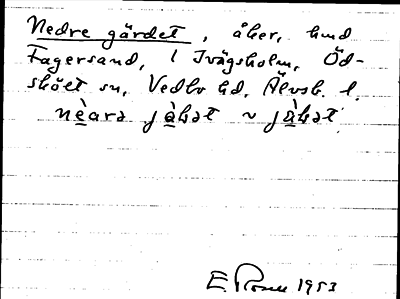 Nedre gärdet, åker, hmd
Fagersand, 1 Ivägsholm, Öd-
skölt sn, Vedbo hd, Älvsb. l.
nèara jàhət ~ jàhət
E Rosell 1953